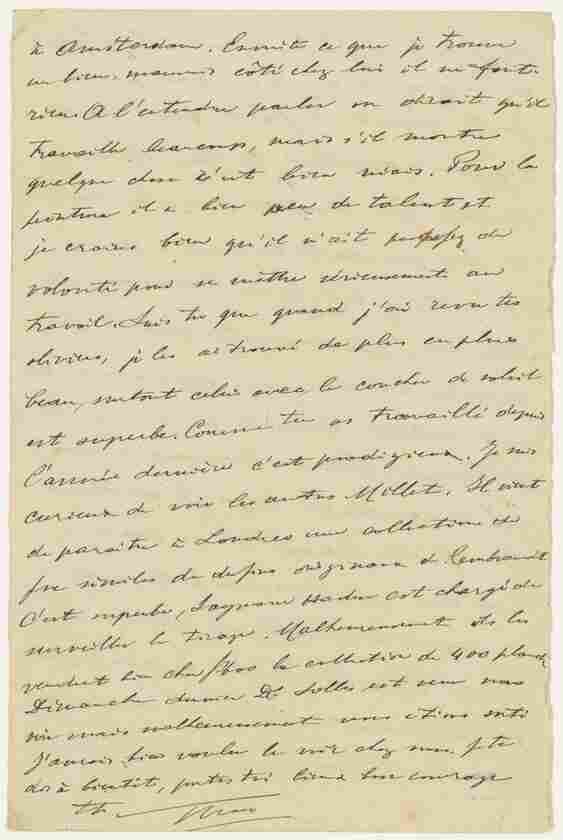 à Amsterdam. Ensuite ce que je trouve
un bien mauvais côté chez lui il ne fout
rien. A l'entendre parler on dirait qu'il
travaille beaucoup, mais s'il montre
quelque chose c'est bien niais. Pour la
peinture il a bien peu de talent et
je crains bien qu'il n'ait pas assez de
volonté pour se mettre sérieusement au
travail. Sais tu que quand j'ai revu tes
oliviers, je les ai trouvé de plus en plus
beau, surtout celui avec le coucher de soleil
est superbe. Comme tu as travaillé depuis
l'année dernière c'est prodigieux. Je suis
curieux de voir les autres Millet. Il vient
de paraître à Londres une collection de
fac similes de dessins originaux de Rembrandt
C'est superbe, Seymour Haden est chargé de
surveiller le tirage. Malheureusement ils les
vendent bien cher la collection de 400 planch
Dimanche dernier Dr. Salles est venu nous
voir mais malheureusement nous étions sorti
J'aurais bien voulu le voir chez nous. Je te
dis à bientôt, portes toi bien & bon courage
Theo